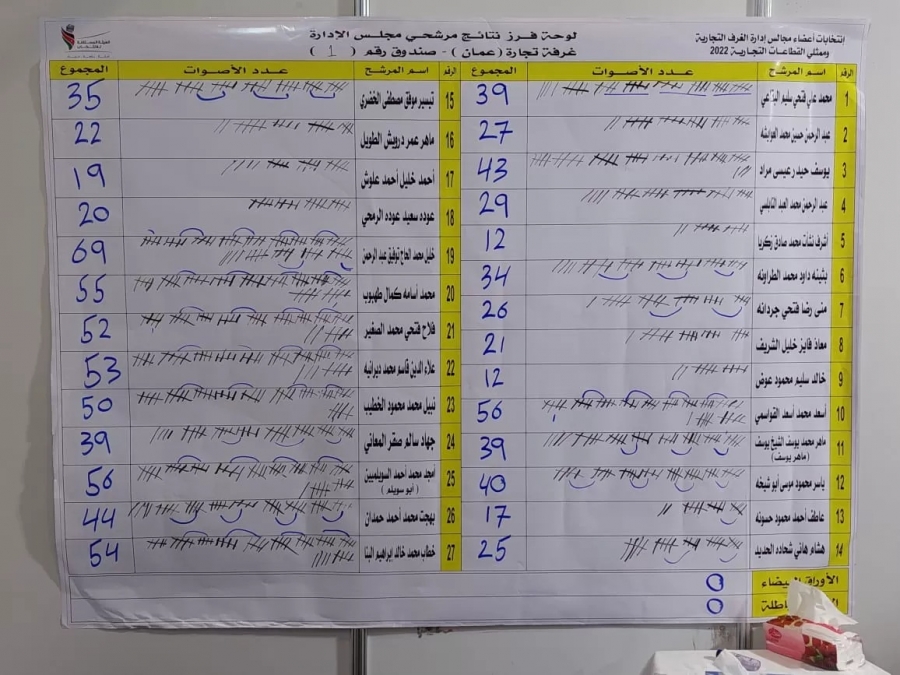 انتخابات أعضاء مجالس إدارة الغرف التجارية
وممثلي القطاعات التجارية 2022
لوحة فرز نتائج مرشحي مجلس الإدارة
غرفة تجارة (عمان) - صندوق رقم (1)
الرقم اسم المرشح عدد الأصوات المجموع
1 محمد علي فتحي سليم البقاعي 39
2 عبد الرحمن حسين محمد العوايشه 27
3 يوسف حيدر عيسى مراد 43
4 عبد الرحمن محمد العبد النابلسي 29
5 أشرف نشأت محمد صادق زكريا 12
6 بثينه داود محمد الطراونه 34
7 منى رضا فتحي جردانه 26
8 معاذ فايز خليل الشريف 21
9 خالد سليم محمود عوض 12
10 أسعد محمد أسعد القواسمي 56
11 ماهر محمد يوسف الشيخ يوسف 39
(ماهر يوسف)
12 ياسر محمود موسى ابو شيخه 40
13 عاطف أحمد محمود حسونه 17
14 هشام هاني شحاده الحديد 25
الرقم اسم المرشح عدد الأصوات المجموع
15 تيسير موفق مصطفى الخضري 35
16 ماهر عمر درويش الطويل 22
17 أحمد خليل أحمد علوش 19
18 عوده سعيد عوده الرمحي 20
19 خليل محمد الحاج توفيق عبد الرحمن 69
20 محمد أسامه كمال طهبوب 55
21 فلاح فتحي محمد الصغير 52
22 علاء الدين قاسم محمد ديرانيه 53
23 نبيل محمد محمود الخطيب 50
24 جهاد سالم صقر المعاني 39
25 امجد محمد احمد السويلميين 56
(ابو سويلم)
26 بهجت محمد أحمد حمدان 44
27 خطاب محمد خالد ابراهيم البنا 54
الأوراق البيضاء 0
0